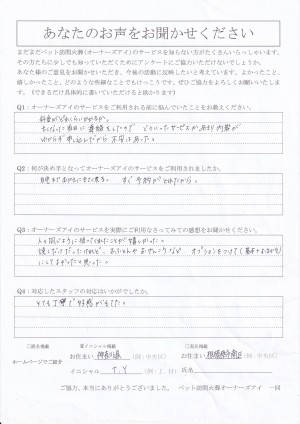 あなたのお声をお聞かせください
まだまだペット訪問火葬(オーナーズアイ)のサービスを知らない方がたくさんいらっしゃいます。
その方たちに少しでも知っていただくためにアンケートにご協力いただけないでしょうか。
あなた様のご意見をお聞かせいただき、今後の活動に反映したいと考えています。よかったこと、
嬉しかったこと、どのような些細なことでもけっこうです。ぜひご協力をよろしくお願いいたしま
す。(できるだけ具体的に書いていただけると助かります)
Q1:オーナーズアイのサービスをご利用される前に悩んでいたことをお教えください。
料金がどれくらいかかるか。
亡くなった当日に連絡をしたので どういったサービスがあるか内容が
わからず申し込んだから 不安はあった。
Q2:何が決め手となってオーナーズアイのサービスをご利用されましたか。
自宅まで来てもらえる。 すぐ予約がとれたから。
Q3:オーナーズアイのサービスを実際にご利用なさってみての感想をお聞かせください。
人と同じように扱ってくれたことが嬉しかった。
オプションをつけて
Q4:対応したスタッフの対応はいかがでしたか。
とても丁寧で好感がもてた。
ホームページでご紹介
お住まい 神奈川県 (例:中央区)
お住まい 相模原市南区 (例:中央区)
イニシャル T.Y (例:J.H)
氏名
ご協力、本当にありがとうございました。 ペット訪問火葬オーナーズアイ 一同